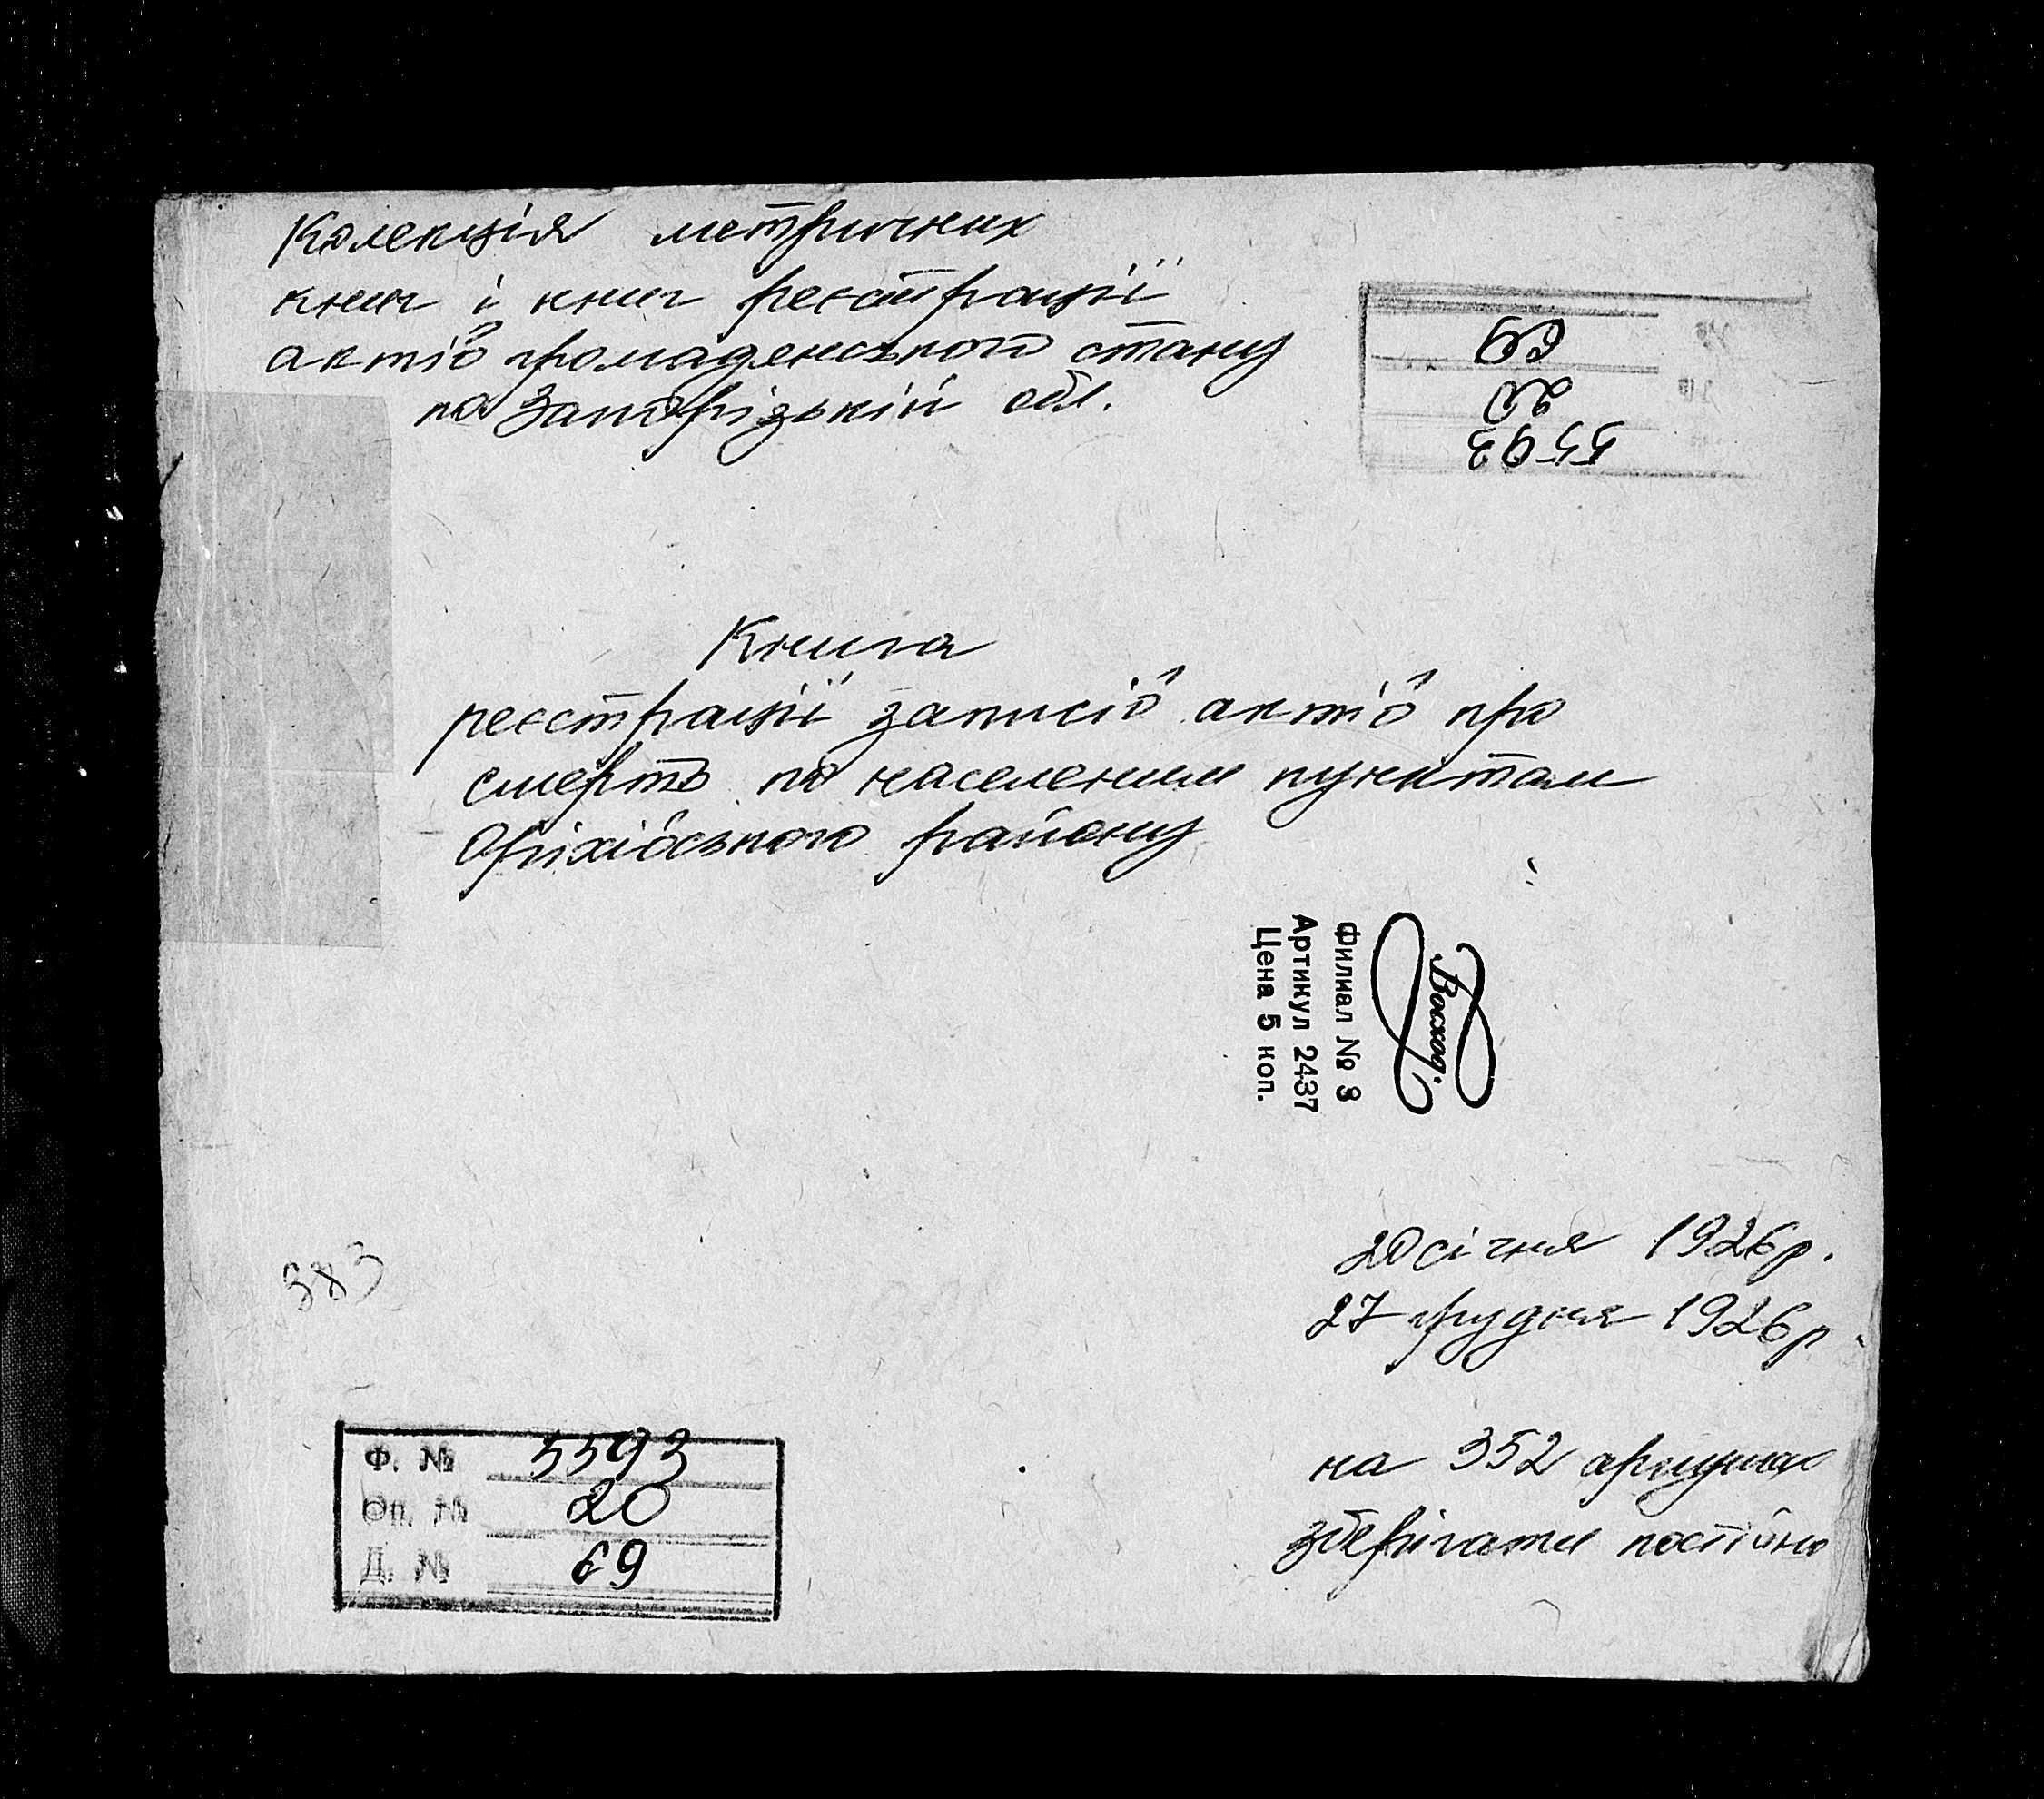 Колекція метричних
книг і книг реєстрації
актів громадянського стану
по Запорізькій обл.
69
20
5593
Книга
реєстрації записів актів про
смерть по населеним пунктам
Оріхівського району
Восход
Филиал № 3
Артикул 2437
Цена 5 коп.
20 січня 1926 р.
27 грудня 1926 р.
383
на 352 аркушах
зберігати постійно
Ф. № 5593
Оп. № 20
Д. № 69